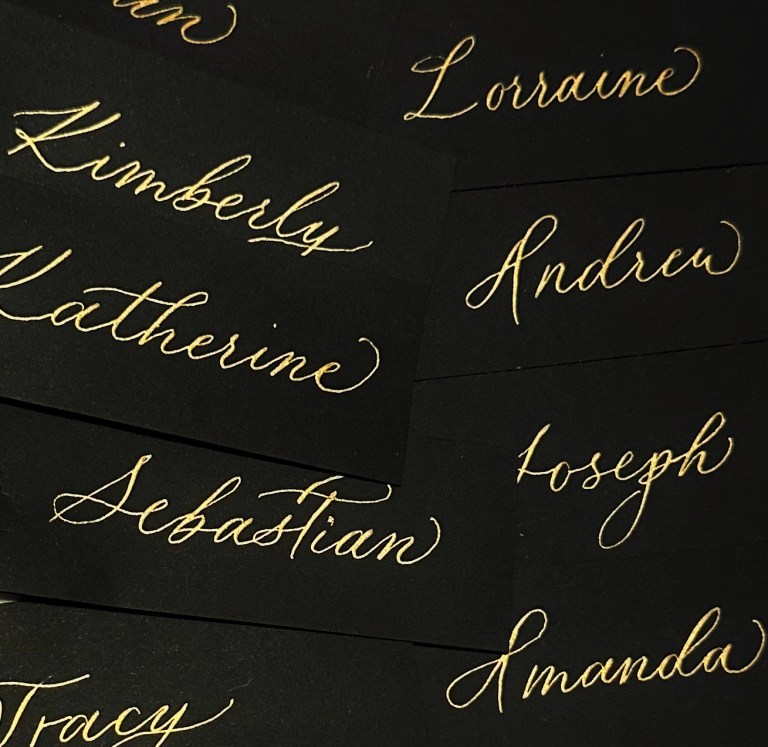 Lorraine
Kimberly
Andrew
Katherine
Joseph
Sebastian
Amanda
Tracy